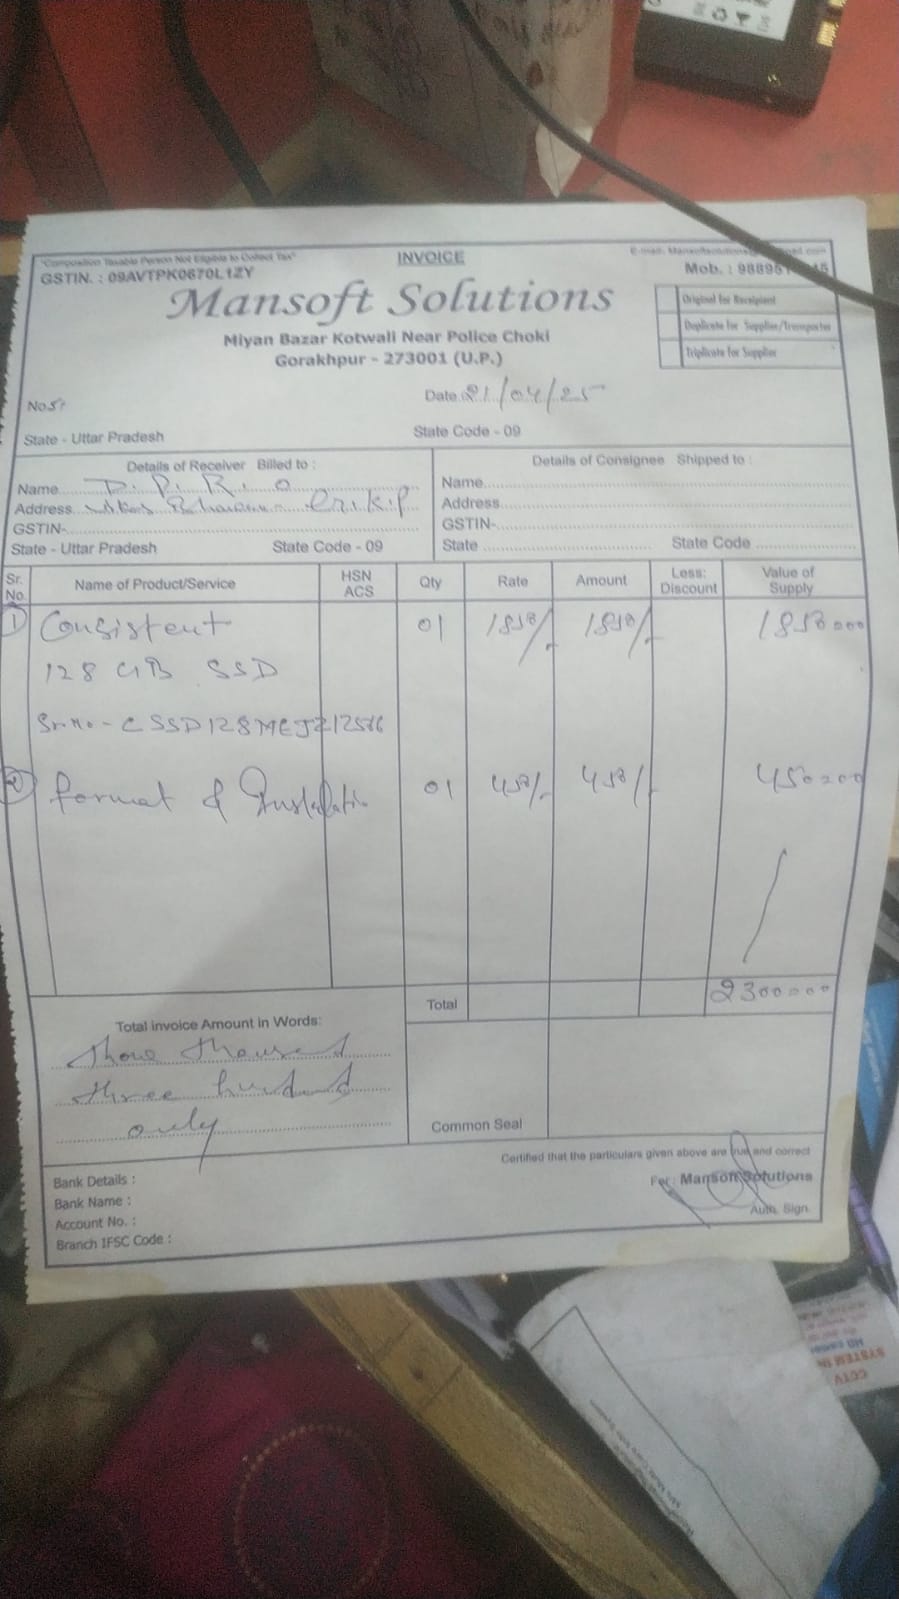 "Composition Taxable Person Not Eligible to Collect Tax"
INVOICE
GSTIN. : 09AVTPK0670L1ZY
Mob. : 98895
Mansoft Solutions
Miyan Bazar Kotwali Near Police Choki
Gorakhpur - 273001 (U.P.)
Original for Receipient
Duplicate for Supplier/Transporter
Triplicate for Supplier
No
Date 21/04/25
State - Uttar Pradesh
State Code - 09
Details of Receiver Billed to :
Name D. P. R. O
Address
GSTIN-
State - Uttar Pradesh State Code - 09
Details of Consignee Shipped to :
Name
Address
GSTIN-
State State Code
Sr. No. Name of Product/Service HSN ACS Qty Rate Amount Less: Discount Value of Supply
1 Consistent 01 1850/- 1850/- 1850=00
128 GB SSD
Sr. No - CSSD128MEJZ12
2 Format & 01 450/- 450/- 450=00
Total 2300=00
Total invoice Amount in Words:
thousand
three hundred
only
Common Seal
Certified that the particulars given above are true and correct
For: Mansoft Solutions
Auth. Sign.
Bank Details :
Bank Name :
Account No. :
Branch IFSC Code :
CCTV
SYSTEM